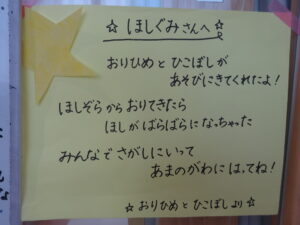 ☆ ほしぐみさんへ ☆
おりひめ と ひこぼしが
あそびにきてくれたよ!
ほしぞら から おりてきたら
ほしが ばらばらに なっちゃった
みんなで さがしにいって
あまのがわに はってね!
☆ おりひめ と ひこぼし より ☆